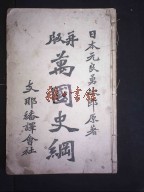 日本元良勇次郎原著
再版
萬國史綱
支那繙譯會社